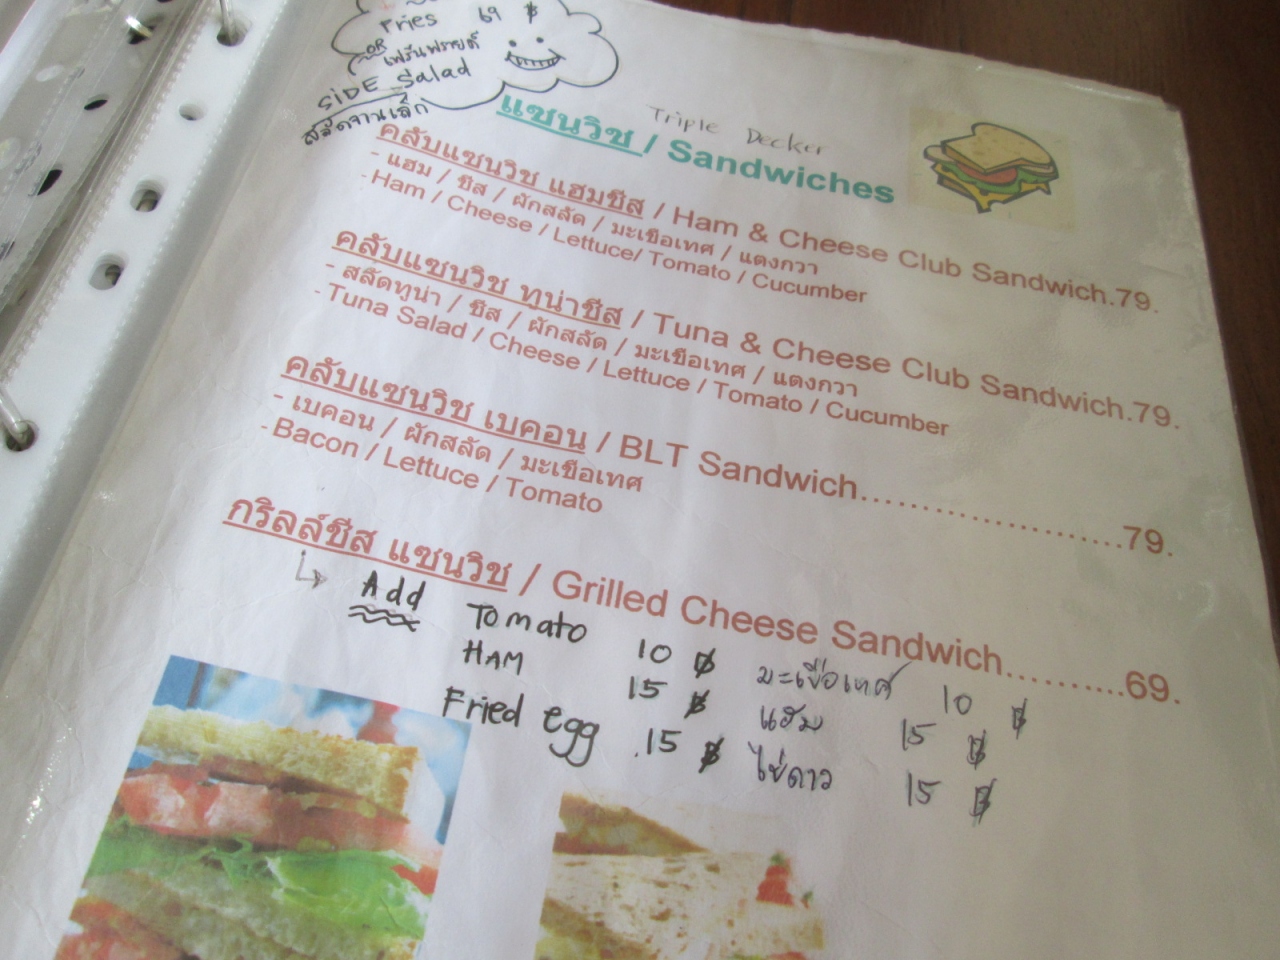 Fries 69 ฿
OR เฟร้นฟรายด์
SiDE Salad
สลัดจานเล็ก
Triple Decker
แซนวิช / Sandwiches
คลับแซนวิช แฮมชีส / Ham & Cheese Club Sandwich.79.
- แฮม / ชีส / ผักสลัด / มะเขือเทศ / แตงกวา
- Ham / Cheese / Lettuce/ Tomato / Cucumber
คลับแซนวิช ทูน่าชีส / Tuna & Cheese Club Sandwich.79.
- สลัดทูน่า / ชีส / ผักสลัด / มะเขือเทศ / แตงกวา
- Tuna Salad / Cheese / Lettuce / Tomato / Cucumber
คลับแซนวิช เบคอน / BLT Sandwich.....................79.
- เบคอน / ผักสลัด / มะเขือเทศ
- Bacon / Lettuce / Tomato
กริลล์ชีส แซนวิช / Grilled Cheese Sandwich..........69.
↳ Add Tomato 10 ฿ มะเขือเทศ 10 ฿
HAM 15 ฿ แฮม 15 ฿
Fried egg .15 ฿ ไข่ดาว 15 ฿